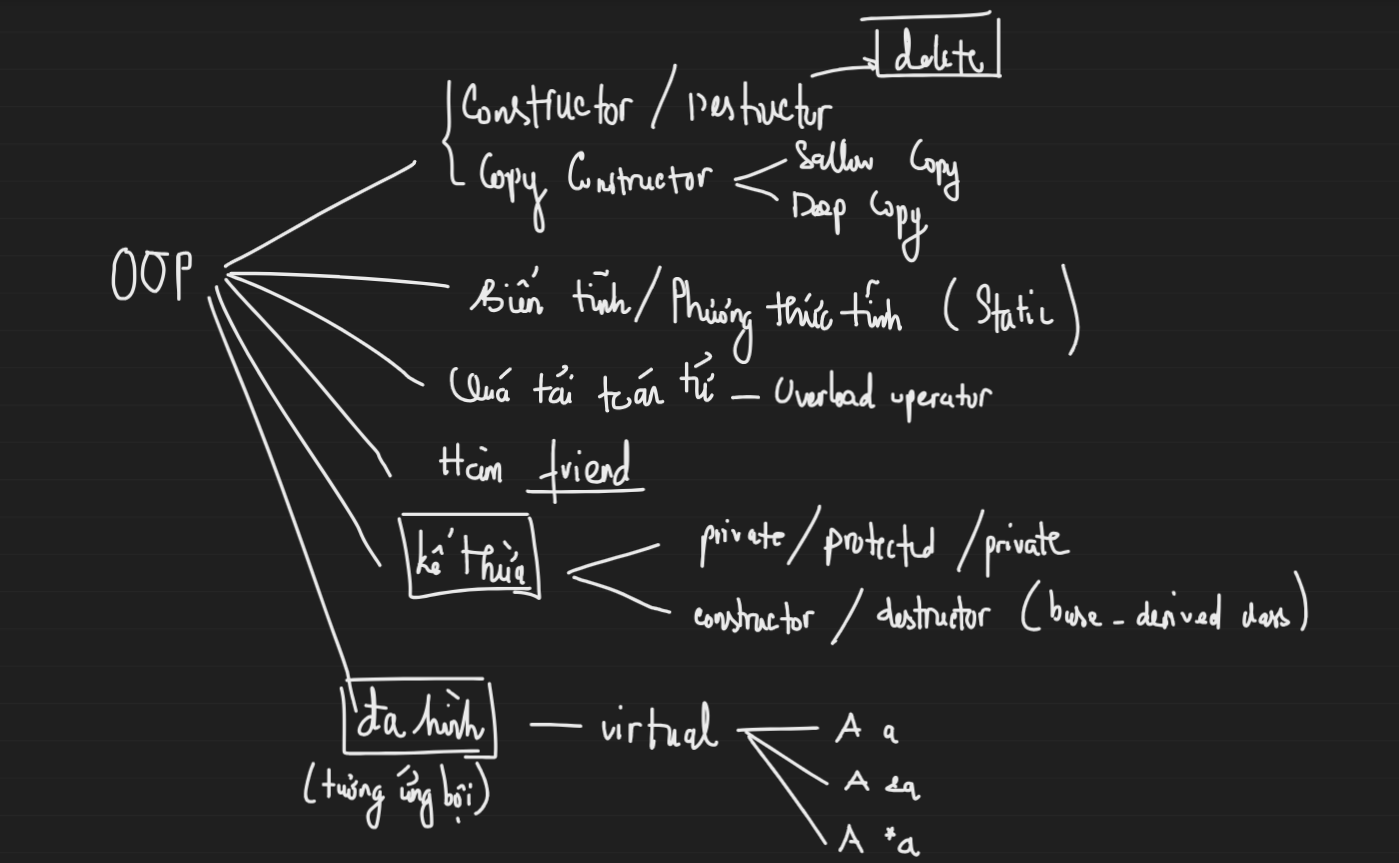 delete
Constructor / Destructor
Copy Constructor
Sallow Copy
Deep Copy
OOP
Biến tĩnh / Phương thức tĩnh (Static)
Quá tải toán tử - Overload operator
Hàm friend
kế thừa
private / protected / private
constructor / destructor (base - derived class)
đa hình - virtual
(tương ứng bội)
A a
A &a
A *a